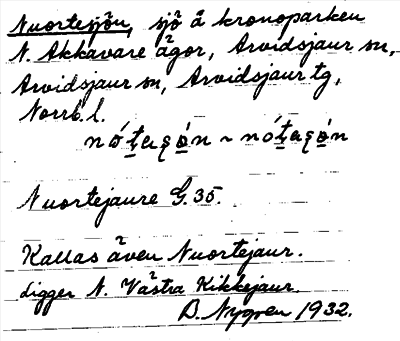 Nuortesjön, sjö å kronoparken
N. Akkavare ägor, Arvidsjaur sn,
Arvidsjaur sn, Arvidsjaur tg,
Norrb. l.
Nuortejaure G.35.
Kallas även Nuortejaur.
Ligger N. Västra Kikkejaur.
B. Nygren 1932.